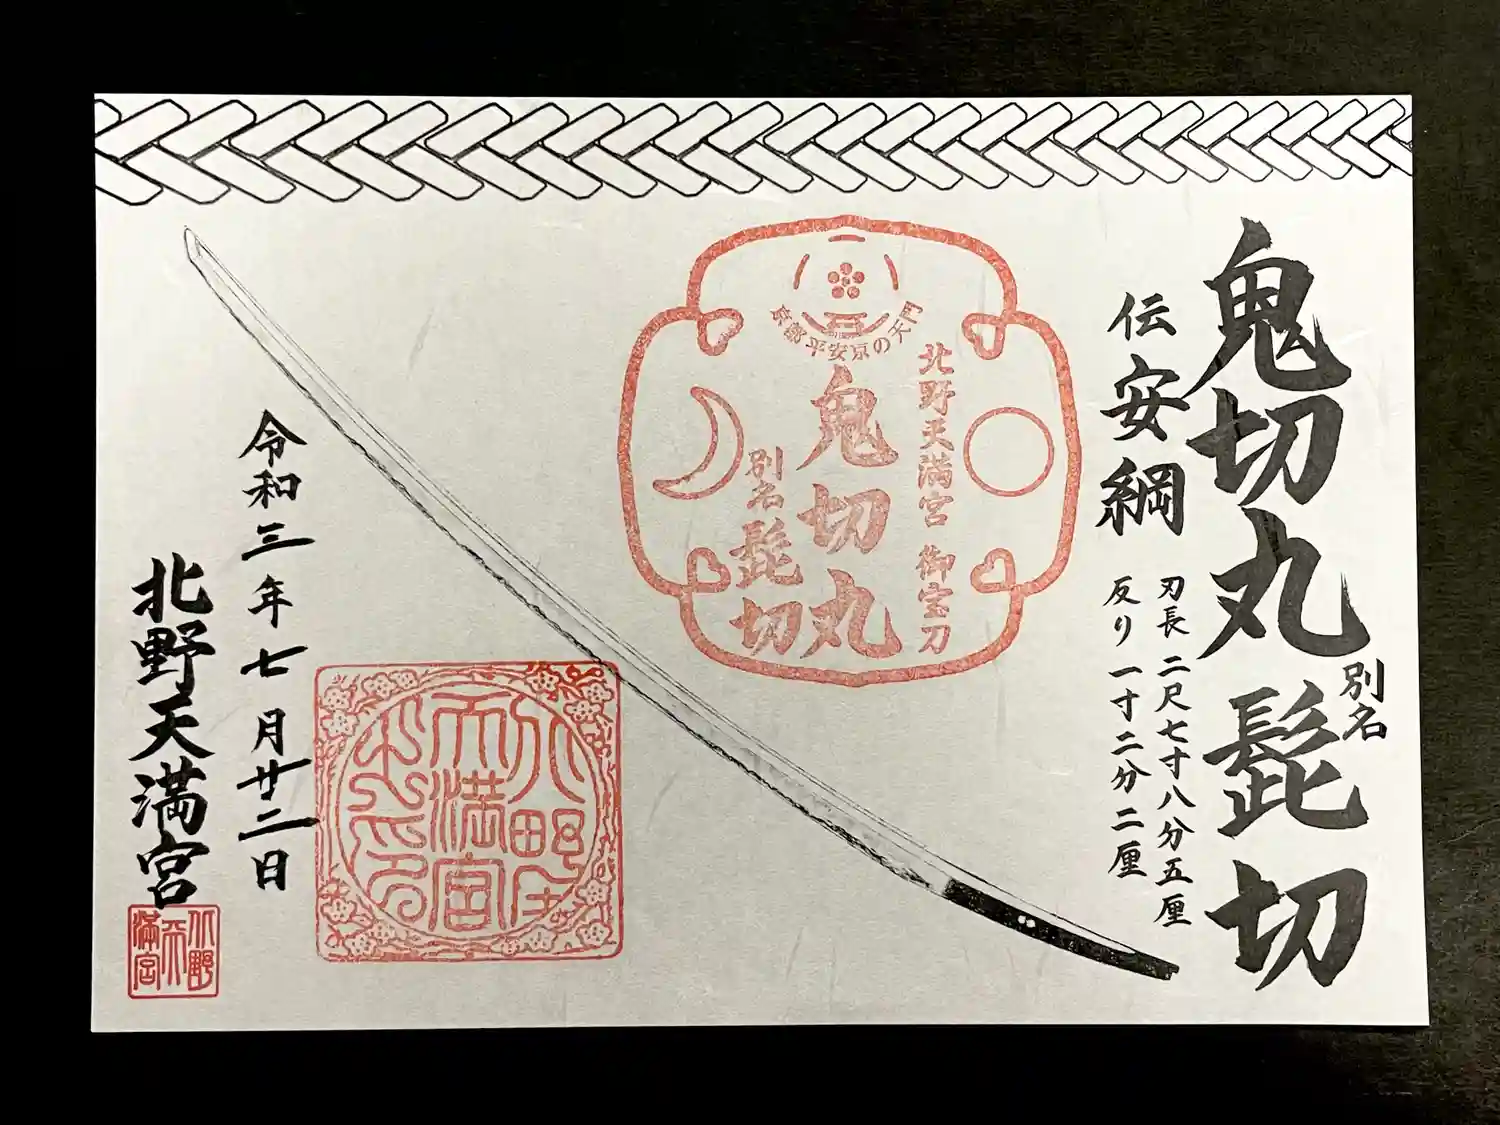 鬼切丸 別名 髭切
伝 安綱
刃長 二尺七寸八分五厘
反り 一寸二分二厘
京都平安京の天門
北野天満宮 御宝刀
鬼切丸
別名 髭切
令和三年七月廿二日
北野天満宮
北野
天満宮
之印
北野
天
満宮